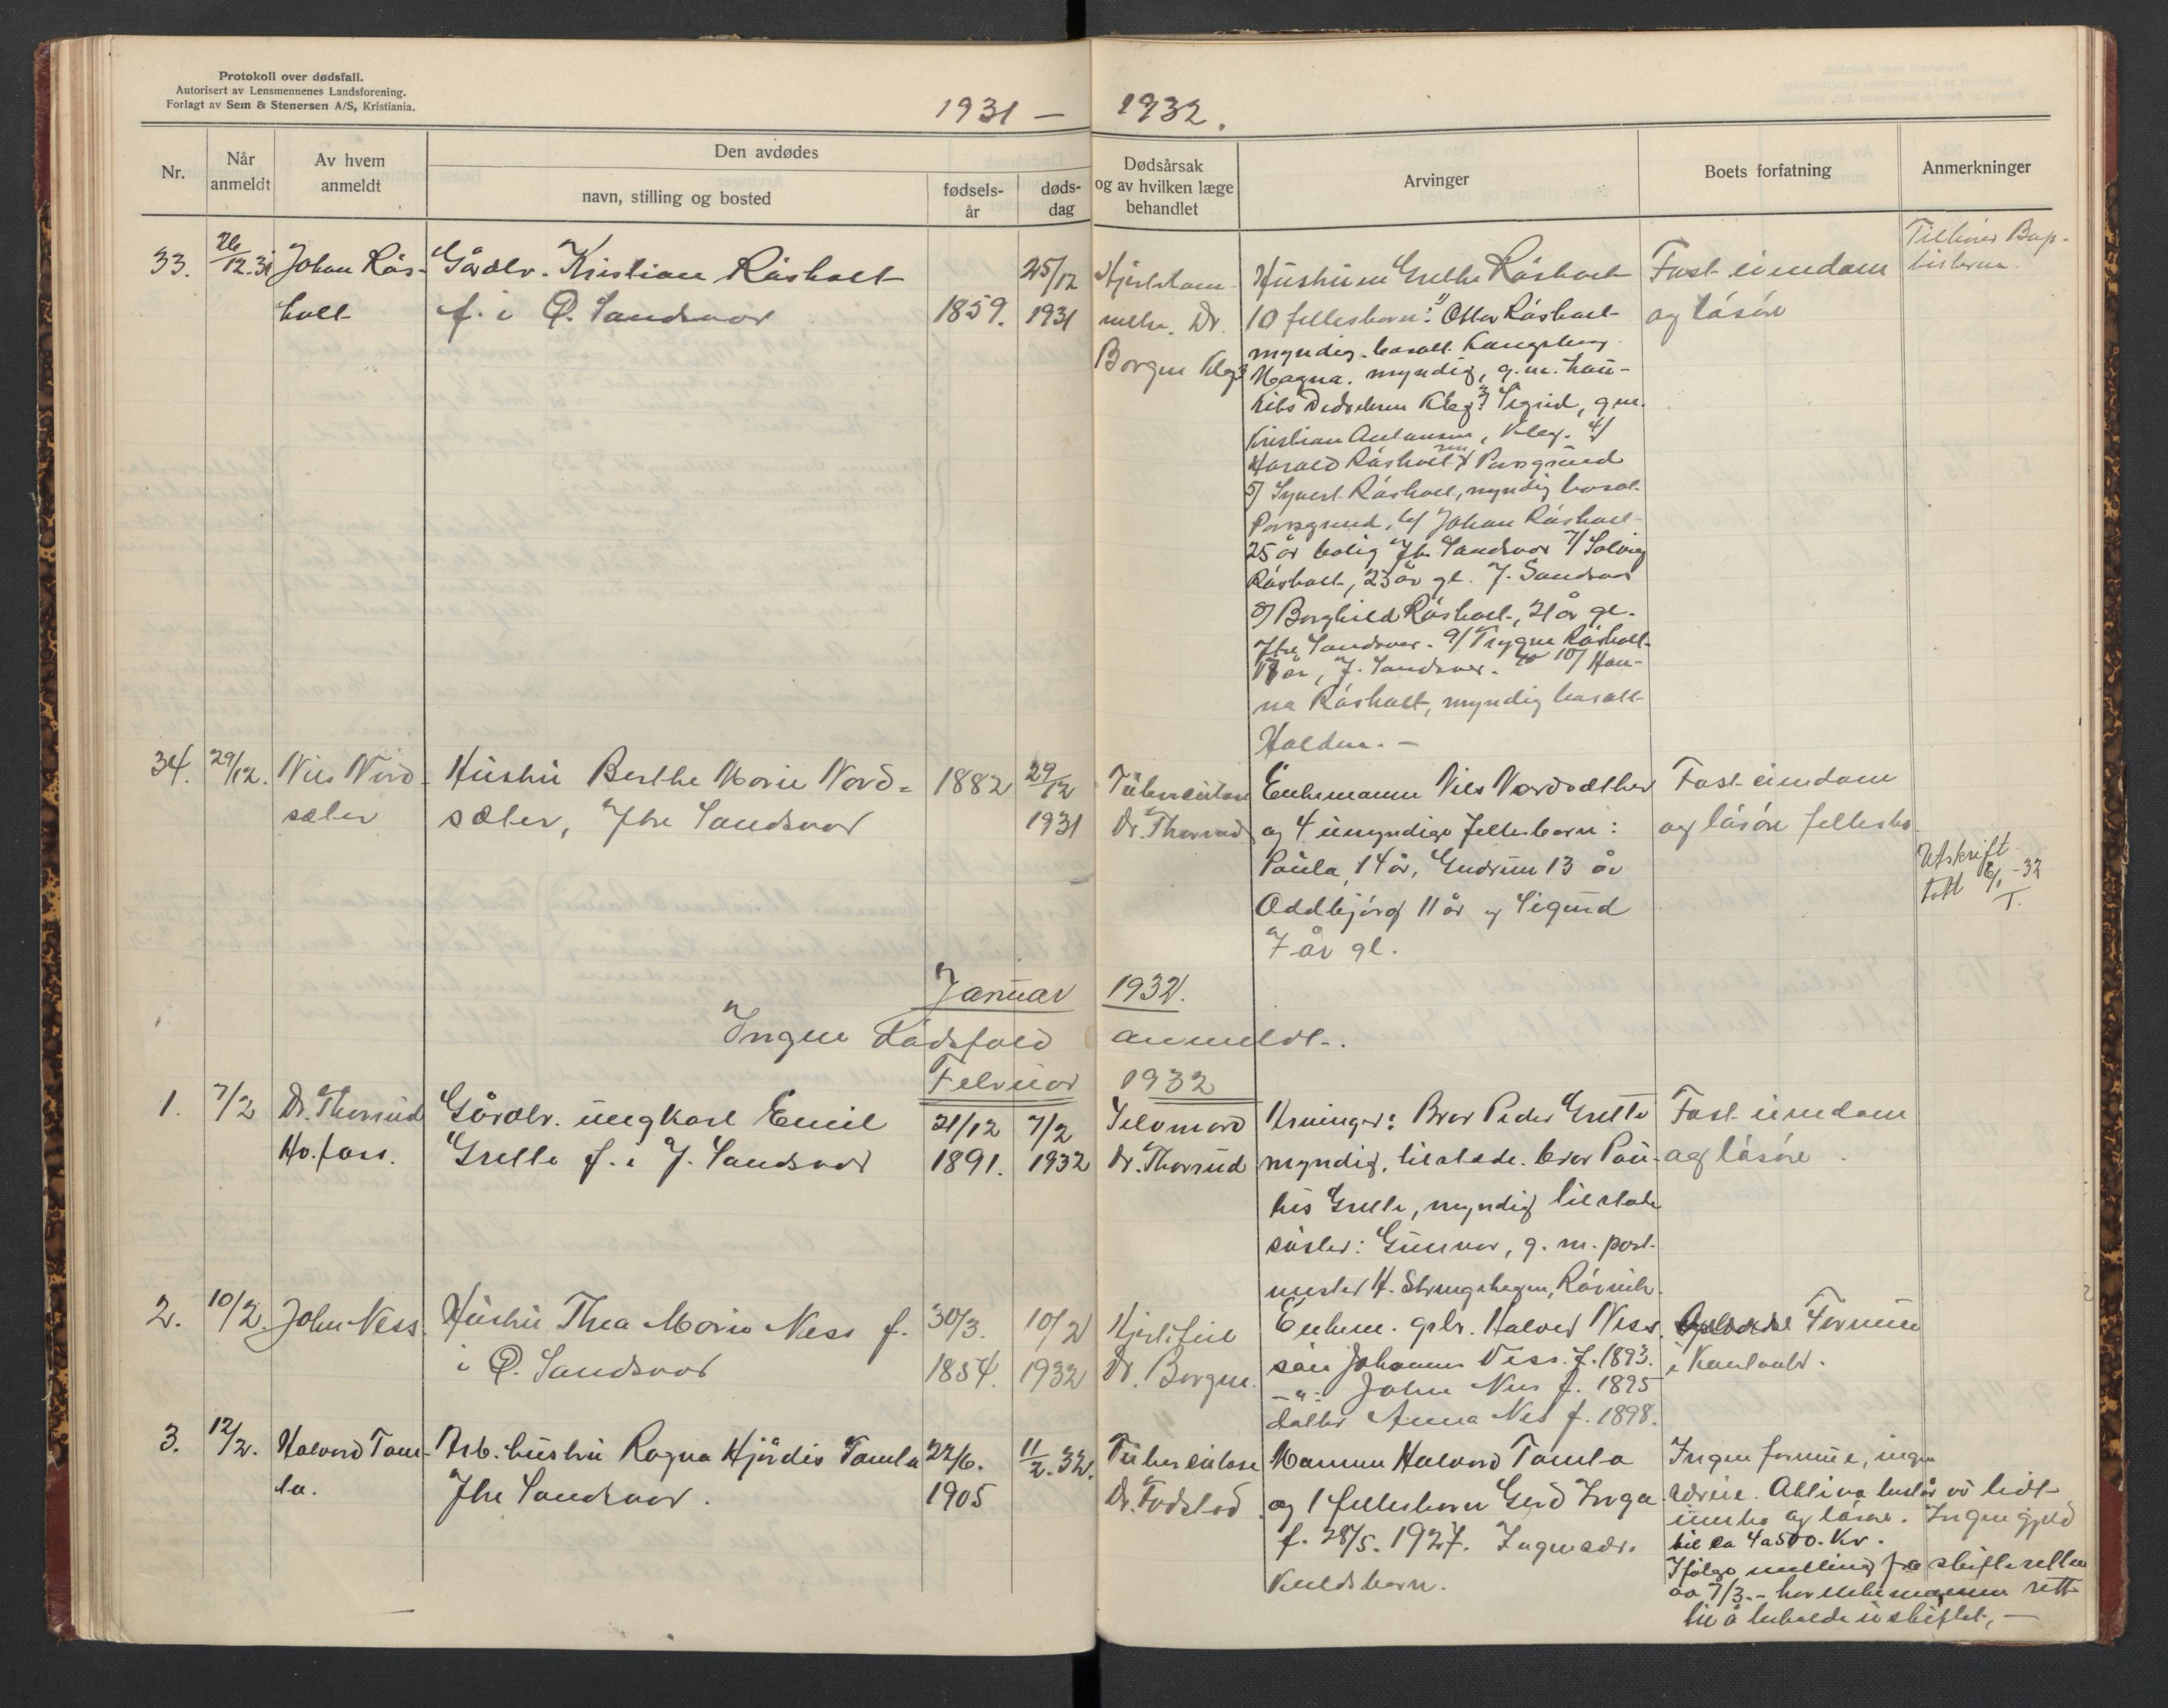 Protokoll over dødsfall.
Autorisert av Lensmennenes Landsforening.
Forlagt av Sem & Stenersen A/S, Kristiania.
1931 — 1932.
Nr.
Når anmeldt
Av hvem anmeldt
Den avdødes
navn, stilling og bosted
fødsels-år
døds-dag
Dødsårsak og av hvilken læge behandlet
Arvinger
Boets forfatning
Anmerkninger
33. 26/12.31 Johan Rås-
holt
Gårdbr. Kristian Råsholt
f. i Ø. Sandsvær
1859.
25/12
1931
Dr.
Borgen Kbg
Hustruen Grethe Råsholt
10 fellesborn: 1) Råsholt
myndig, bosatt Kongsberg
Magna. myndig, g.m. hau-
Kbg 3) Sigrid, g.m.
Kristian, Kbg. 4)
Harald Råsholt Porsgrund
5) Syvert Råsholt, myndig bosat
Porsgrund, 6/ Johan Råsholt
25 år bolig Jtre Sandsvær 7/ Solveig
Råsholt, 23 år gl. J. Sandsvær
8) Borghild Råsholt, 21 år gl.
Jtre Sandsvær. 9/ Trygve Råsholt
år, J. Sandsvær. 10/ Han-
na Råsholt, myndig bosatt
Halden. —
Fast eiendom
og løsøre
Tilhører Bap-
tisterne.
34. 29/12. Nils Nord-
sæter
Hustru Berthe Marie Nord=
sæter, Jtre Sandsvær
1882
29/12
1931
Tuberculose
Dr. Thorsrud
Enkemann Nils Nordsæther
og 4 umyndige fellesbarn:
Paula, 14 år, Gudrun 13 år
Oddbjørg 11 år og Sigurd
7 år gl.
Fast eiendom
og løsøre fellesbo
Utskrift
tatt 6/1-32
T.
Januar 1932.
Ingen Dødsfald anmeldt.
Februar 1932
1. 7/2 Dr. Thorsrud
Hv.foss.
Gårdbr. ungkarl Emil
Grette f. i J. Sandsvær
21/12
1891.
7/2
1932
Selvmord
Dr. Thorsrud
Arvinger: Bror Peder Grette
myndig, tilstede. bror Pau-
lus Grette, myndig tilstede
søster: Gunvor, g. m. post-
mester H.
Fast eiendom
og løsøre.
2. 10/2. John Ness.
Hustru Thea Marie Ness f.
i Ø. Sandsvær
30/3.
1854.
10/2
1932
Hjertefeil
Dr. Borgen.
Enkem. gbr. Halvor Ness.
søn Johannes Ness. f. 1893.
—"— John Nes f. 1895
datter Anna Nes f. 1898.
Formue
i
3. 12/2. Halvord Tam-
la.
Arb. hustru Ragna Hjørdis Tamla
Jtre Sandsvær.
22/6.
1905
11/2.32.
Tuberculose
Dr. Fodstad
Mannen Halvord Tamla
og 1 fellesbarn Gerd Inga
f. 28/5. 1927. Ingen sær-
kuldsbarn.
Ingen formue, ingen
særeie. Aktiva består av lidt
innbo og løsøre. Ingen gjeld
til ca 4 a 500. Kr.
Ifølge melling fra skifteretten
av 7/3.- har enkemannen rett
til å beholde uskiftet, —